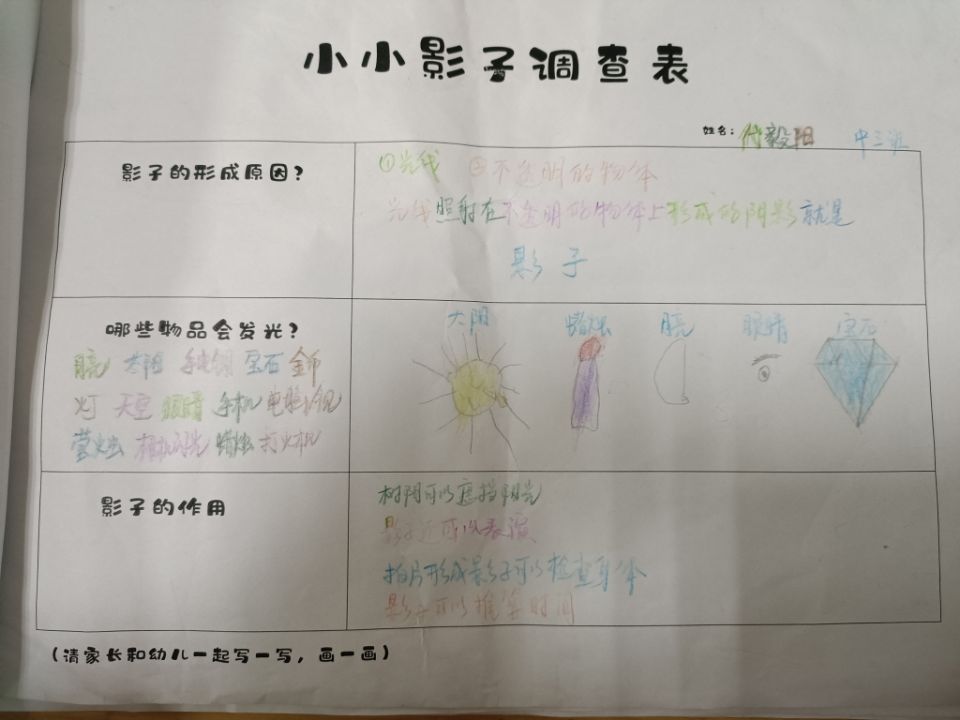 小小影子调查表
姓名：代毅阳 中三班
影子的形成原因？
①光线 ②不透明的物体
光线照射在不透明的物体上形成的阴影就是
影子
哪些物品会发光？
月亮 太阳 手电筒 宝石 金币
灯 天空 眼睛 手机 电脑 电视
萤火虫 相机闪光 蜡烛 打火机
太阳 蜡烛 月亮 眼睛 宝石
影子的作用
树阴可以遮挡阳光
影子还可以表演
拍片形成影子可以检查身体
影子可以推算时间
（请家长和幼儿一起写一写，画一画）